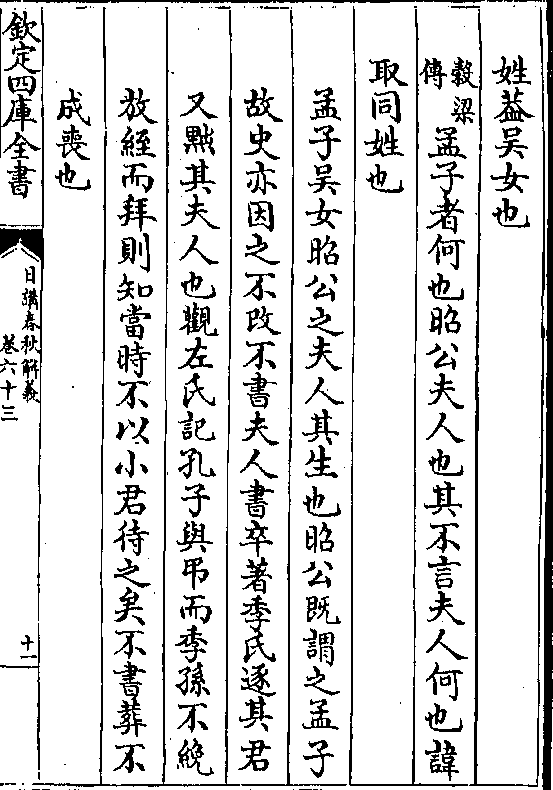 姓葢吴女也
穀梁傳 孟子者何也昭公夫人也其不言夫人何也諱
取同姓也
孟子吴女昭公之夫人其生也昭公既謂之孟子
故史亦因之不改不書夫人書卒著季氏逐其君
又黜其夫人也觀左氏記孔子與弔而季孫不絻
放絰而拜則知當時不以小君待之矣不書葬不
成喪也
欽定四庫全書
日講春秋解義
卷六十三
十一